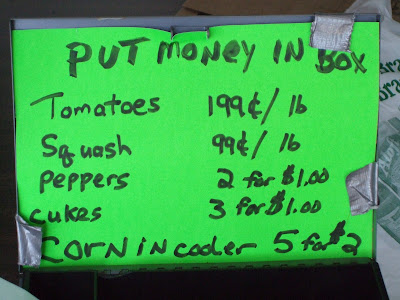 PUT MONEY IN BOX
Tomatoes 199¢/ lb
Squash 99¢/ lb
Peppers 2 for $1.00
Cukes 3 for $1.00
CORN IN cooler 5 for $2